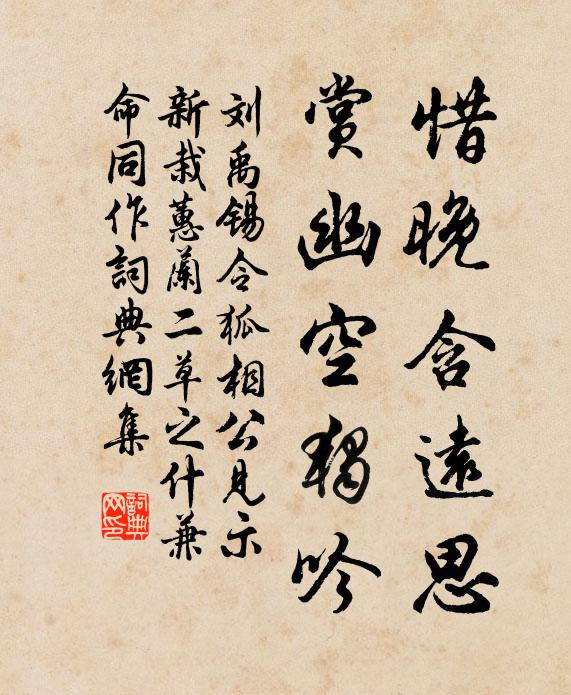 惜晚含遠思
賞幽空獨吟
刘禹锡令狐相公見示
新栽蕙蘭二草之什兼
命同作詞典網集
詞典网印